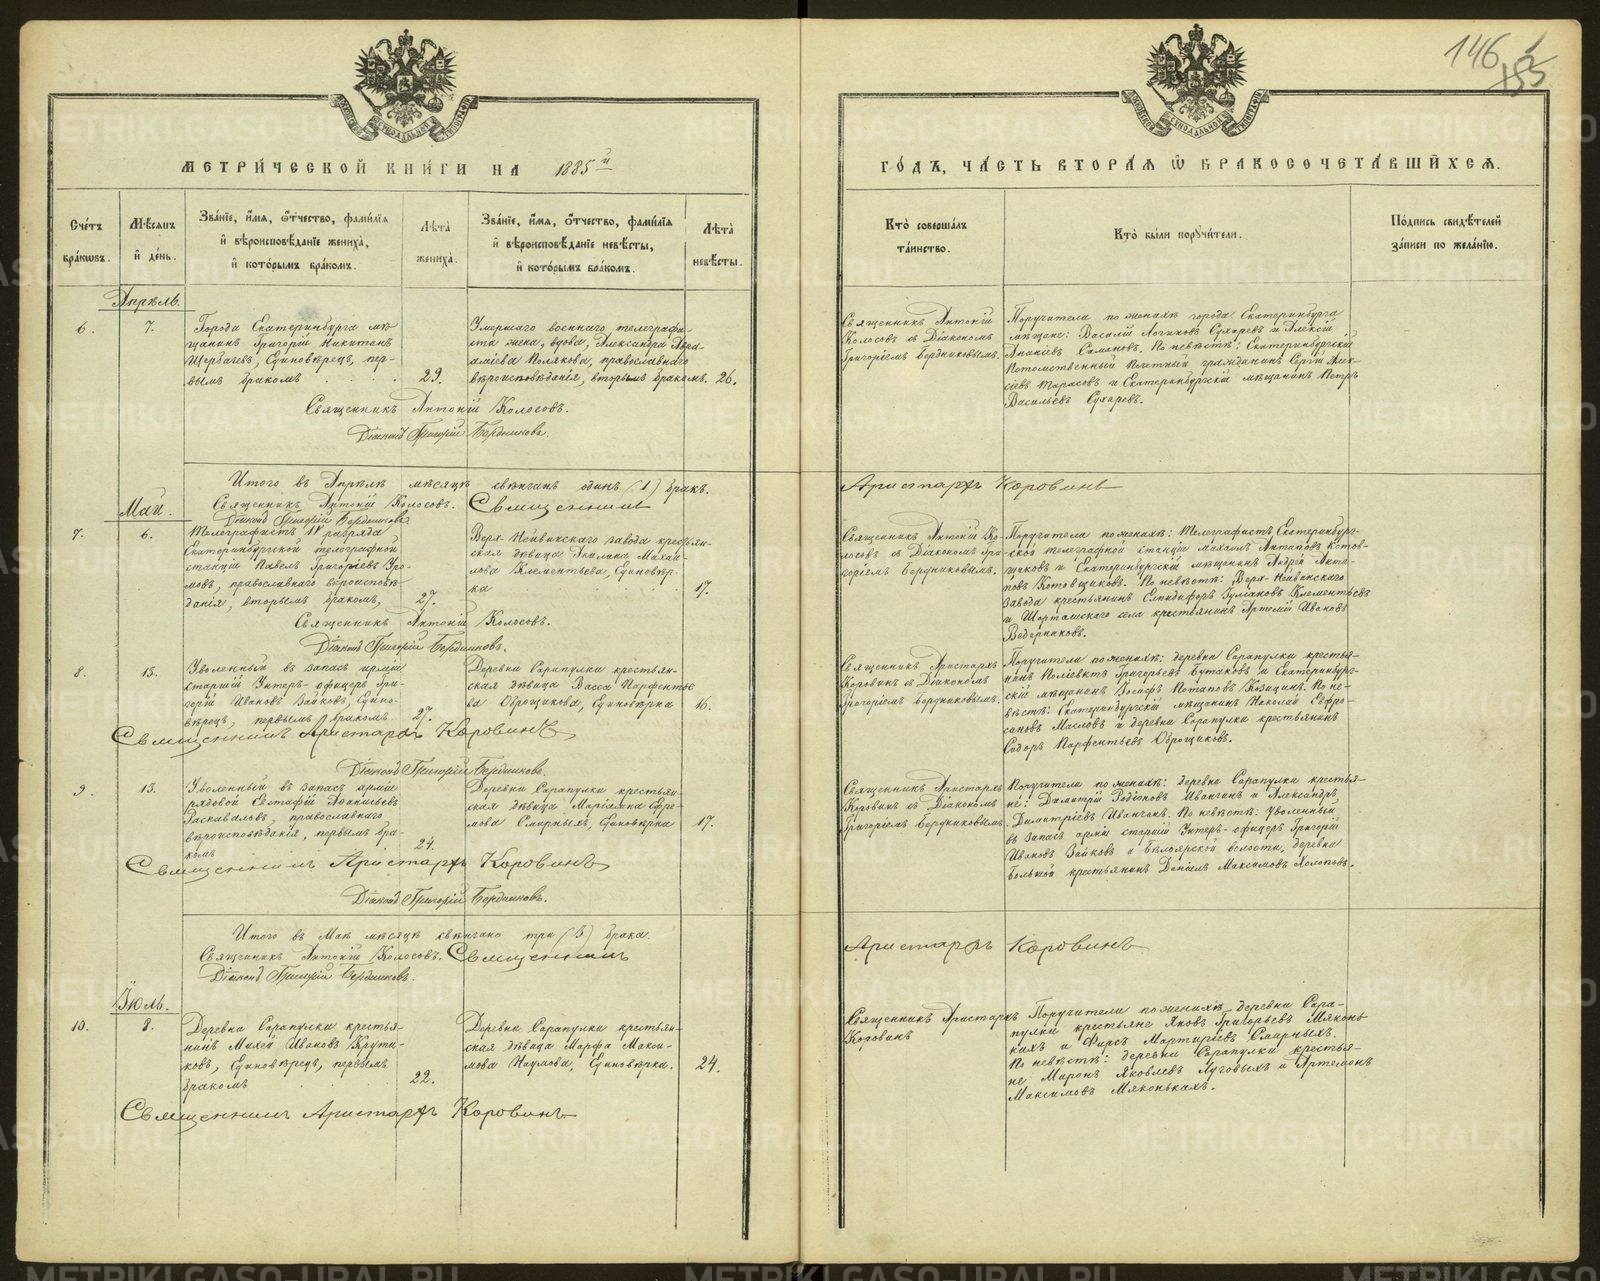 146
155
МЕТРИЧЕСКОЙ КНИГИ НА 1885 й
ГОДЪ, ЧАСТЬ ВТОРАЯ Ѿ БРАКОСОЧЕТАВШИХСЯ.
Счетъ браковъ.
Мѣсяцъ и день.
Званіе, имя, отчество, фамилія
и вѣроисповѣданіе жениха,
и которымъ бракомъ.
Лѣта жениха.
Званіе, имя, отчество, фамилія
и вѣроисповѣданіе невѣсты,
и которымъ бракомъ.
Лѣта невѣсты.
Кто совершалъ
таинство.
Кто были поручители.
Подпись свидѣтелей
записи по желанію.
Апрѣль.
6.
7.
Города Екатеринбурга мѣ-
щанинъ Григорій Никитинъ
Щербачевъ, Единовѣрецъ, пер-
вымъ бракомъ
29.
Умершаго военнаго телеграфи-
ста жена, вдова, Александра Авра-
аміева Полякова, православнаго
вѣроисповѣданія, вторымъ бракомъ.
26.
Священникъ Антоній
Колосовъ съ Діакономъ
Григоріемъ Бердниковымъ.
Поручители по женихѣ города Екатеринбурга
мѣщане: Василій Логиновъ Сухаревъ и Алексій
Ананіевъ Симановъ. По невѣстѣ: Екатеринбургскій
Потомственный Почетный гражданинъ Сергій Алек-
сіевъ Тарасовъ и Екатеринбургскій мѣщанинъ Петръ
Васильевъ Сухаревъ.
Священникъ Антоній Колосовъ.
Діаконъ Григорій Бердниковъ.
Итого въ Апрѣлѣ мѣсяцѣ свѣнчанъ одинъ (1) бракъ.
Священникъ Антоній Колосовъ. Священникъ Аристархъ Коровинъ
Діаконъ Григорій Бердниковъ
Май.
7.
6.
Телеграфистъ IV разряда
Екатеринбургской телеграфной
станціи Павелъ Григоріевъ Гро-
мовъ, православнаго вѣроисповѣ-
данія, вторымъ бракомъ,
27.
Верх-Нейвинскаго завода крестьян-
ская дѣвица Акилина Михаи-
лова Клементьева, Единовѣр-
ка
17.
Священникъ Антоній Ко-
лосовъ съ Діакономъ Гри-
горіемъ Бердниковымъ.
Поручители по женихѣ: Телеграфистъ Екатеринбург-
ской телеграфной станціи Михаилъ Антиповъ Котов-
щиковъ и Екатеринбургскій мѣщанинъ Андрей Анти-
повъ Котовщиковъ. По невѣстѣ: Верх-Нейвинскаго
завода крестьянинъ Елпидифоръ Іуліановъ Клементьевъ
и Шарташскаго села крестьянинъ Артемій Ивановъ
Ведерниковъ.
Священникъ Антоній Колосовъ.
Діаконъ Григорій Бердниковъ.
8.
15.
Уволенный въ запасъ арміи
старшій Унтеръ-офицеръ Гри-
горій Ивановъ Зайковъ, Едино-
вѣрецъ, первымъ бракомъ
27.
Деревни Сарапулки крестьян-
ская дѣвица Васса Парфентье-
ва Оброщикова, Единовѣрка
16.
Священникъ Аристархъ
Коровинъ съ Діакономъ
Григоріемъ Бердниковымъ.
Поручители по женихѣ: деревни Сарапулки крестья-
нинъ Поліевктъ Григорьевъ Бутаковъ и Екатеринбург-
скій мѣщанинъ Іосифъ Потаповъ Козицинъ. По не-
вѣстѣ: Екатеринбургскій мѣщанинъ Николай Евфро-
синовъ Масловъ и деревни Сарапулки крестьянинъ
Сидоръ Парфентьевъ Оброщиковъ.
Священникъ Аристархъ Коровинъ
Діаконъ Григорій Бердниковъ.
9.
15.
Уволенный въ запасъ арміи
рядовой Евстафій Афанасьевъ
Раскаваловъ, православнаго
вѣроисповѣданія, первымъ бра-
комъ
24.
Деревни Сарапулки крестьян-
ская дѣвица Маріамна Ефре-
мова Смирныхъ, Единовѣрка
17.
Священникъ Аристархъ
Коровинъ съ Діакономъ
Григоріемъ Бердниковымъ.
Поручители по женихѣ: деревни Сарапулки крестья-
не: Димитрій Родіоновъ Иванчинъ и Александръ
Димитріевъ Иванчинъ. По невѣстѣ: Уволенный
въ запасъ арміи старшій Унтеръ-офицеръ Григорій
Ивановъ Зайковъ и Бѣлоярской волости, деревни
Большой крестьянинъ Даніилъ Максимовъ Холоповъ.
Священникъ Аристархъ Коровинъ
Діаконъ Григорій Бердниковъ.
Итого въ Маѣ мѣсяцѣ свѣнчано три (3) брака.
Священникъ Антоній Колосовъ. Священникъ Аристархъ Коровинъ
Діаконъ Григорій Бердниковъ.
Іюль.
10.
8.
Деревни Сарапулки крестья-
нинъ Михей Ивановъ Крути-
ковъ, Единовѣрецъ, первымъ
бракомъ
22.
Деревни Сарапулки крестьян-
ская дѣвица Марфа Макси-
мова Наумова, Единовѣрка.
24.
Священникъ Аристархъ
Коровинъ
Поручители по женихѣ деревни Сара-
пулки крестьяне Яковъ Григорьевъ Мяконь-
кихъ и Фирсъ Мартиріевъ Смирныхъ.
По невѣстѣ: деревни Сарапулки крестья-
не Маронъ Яковлевъ Луговыхъ и Артемонъ
Максимовъ Мяконькихъ.
Священникъ Аристархъ Коровинъ
METRIKI.GASO-URAL.RU